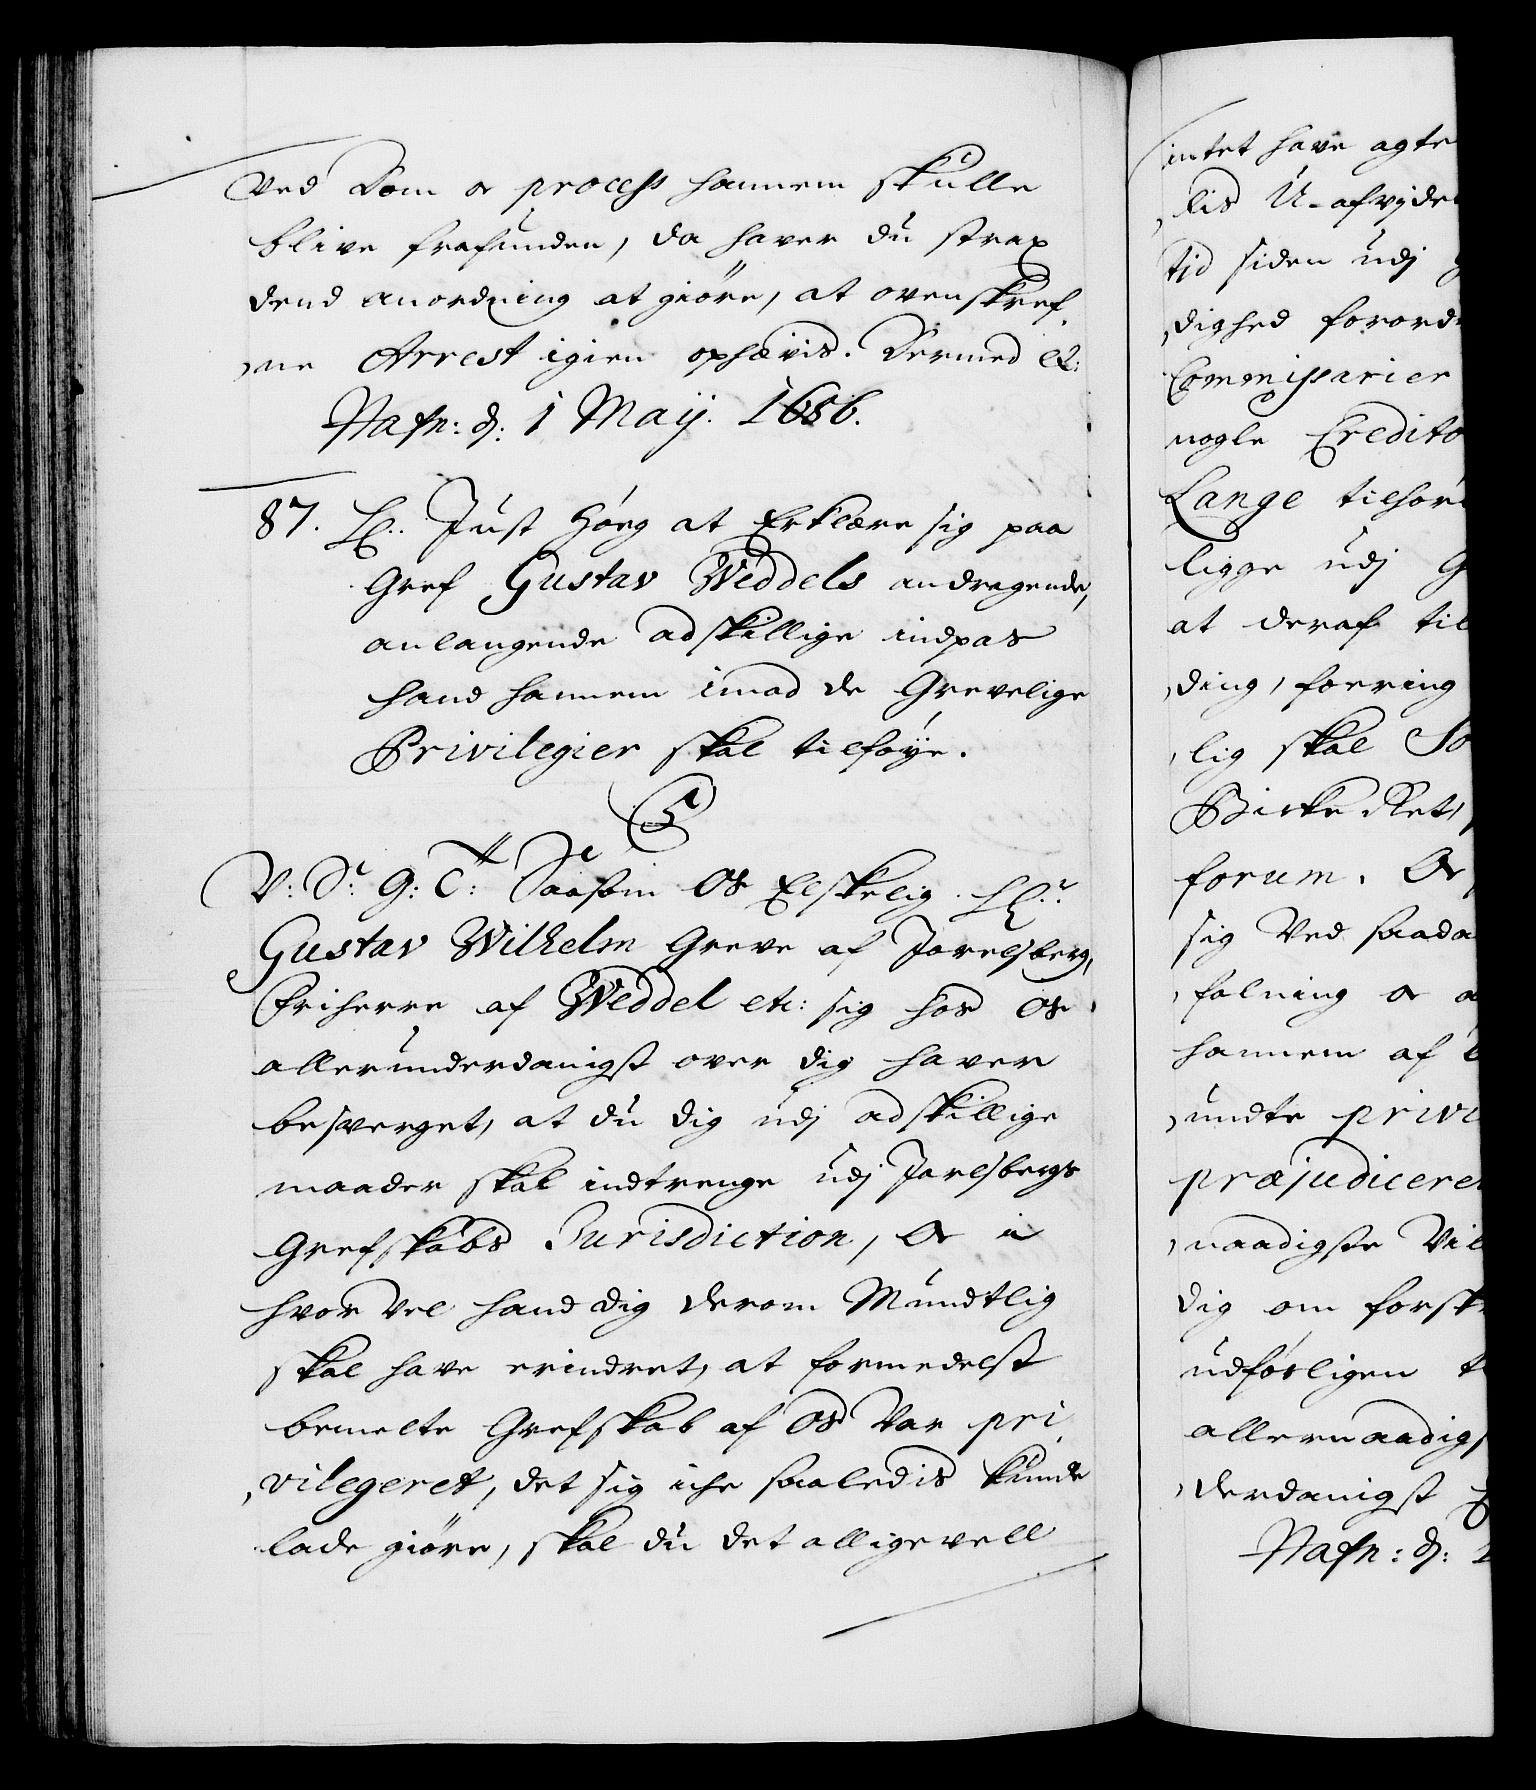 Ved Dom oc process hannem skulle
blive frafunden, da haver du strax
dend anordning at giöre, at ovenskref
ne Arrest igien ophævis. Dermed &:
Hafn: d: 1 Maij. 1686.
87. H. Just Høeg at Erklære sig paa
Gref Gustav Weddels andragende,
anlangende adskillige indpas
hand hannem imod de Grevelige
Privilegier skal tilføye.
C5
V: S: G: T: Saasom Os Elskelig Hr.
Gustav Wilhelm Greve af Jarelsberg,
Friherre af Weddel etc: sig hos os
allerunderdanigst over dig haver
besverget, at du dig udj adskillige
maader skal indtrenge udj Jarlsbergs
Grefskabs Jurisdiction, Oc i
hvor vel hand dig derom Mundtlig
skal have erindret, at formedelst
bemelte Grefskab af Os var pri
vilegeret, det sig iche saaledis kunde
lade giöre, skal du det alligevell
intet have agte
lis U-afvide
tid siden udj
dighed forord
Commissarier
nogle Credito
Lange tilhør
ligge udj G
at deraf til
ding, foering
lig skal So
Birke Ret,
forum. Oc
sig Ved saada
falning oc a
hannem af
undte privi
præjudicere
naadigste Vil
dig om forsk
udførligen t
allernaadigs
derdanigst
Hafn: d: 1